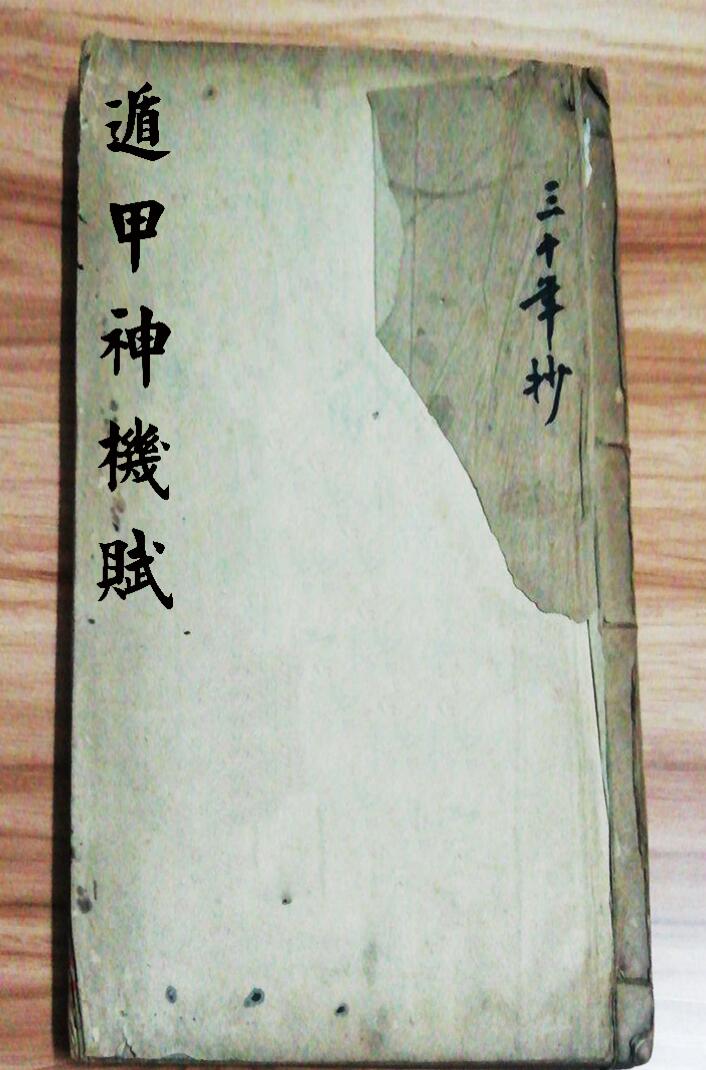 三十年抄
遁甲神機賦